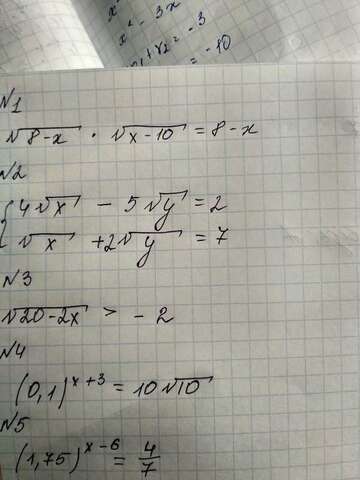 x² - 3x
x₁ + x₂ = -3
= -10
N1
√8-x · √x-10 = 8-x
N2
{ 4√x - 5√y = 2
√x + 2√y = 7
N3
√20-2x > -2
N4
(0,1)^x+3 = 10√10
N5
(1,75)^x-6 = 4/7